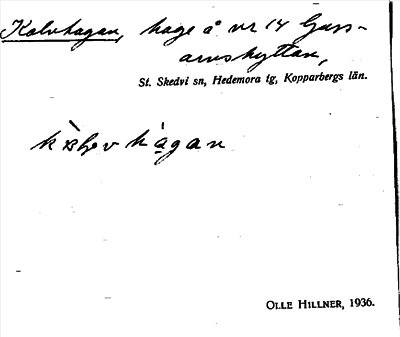 Kalvhagan, hage å nr 14 Gass-
arvshyttan,
St. Skedvi sn, Hedemora tg, Kopparbergs län.
hagan
OLLE HILLNER, 1936.